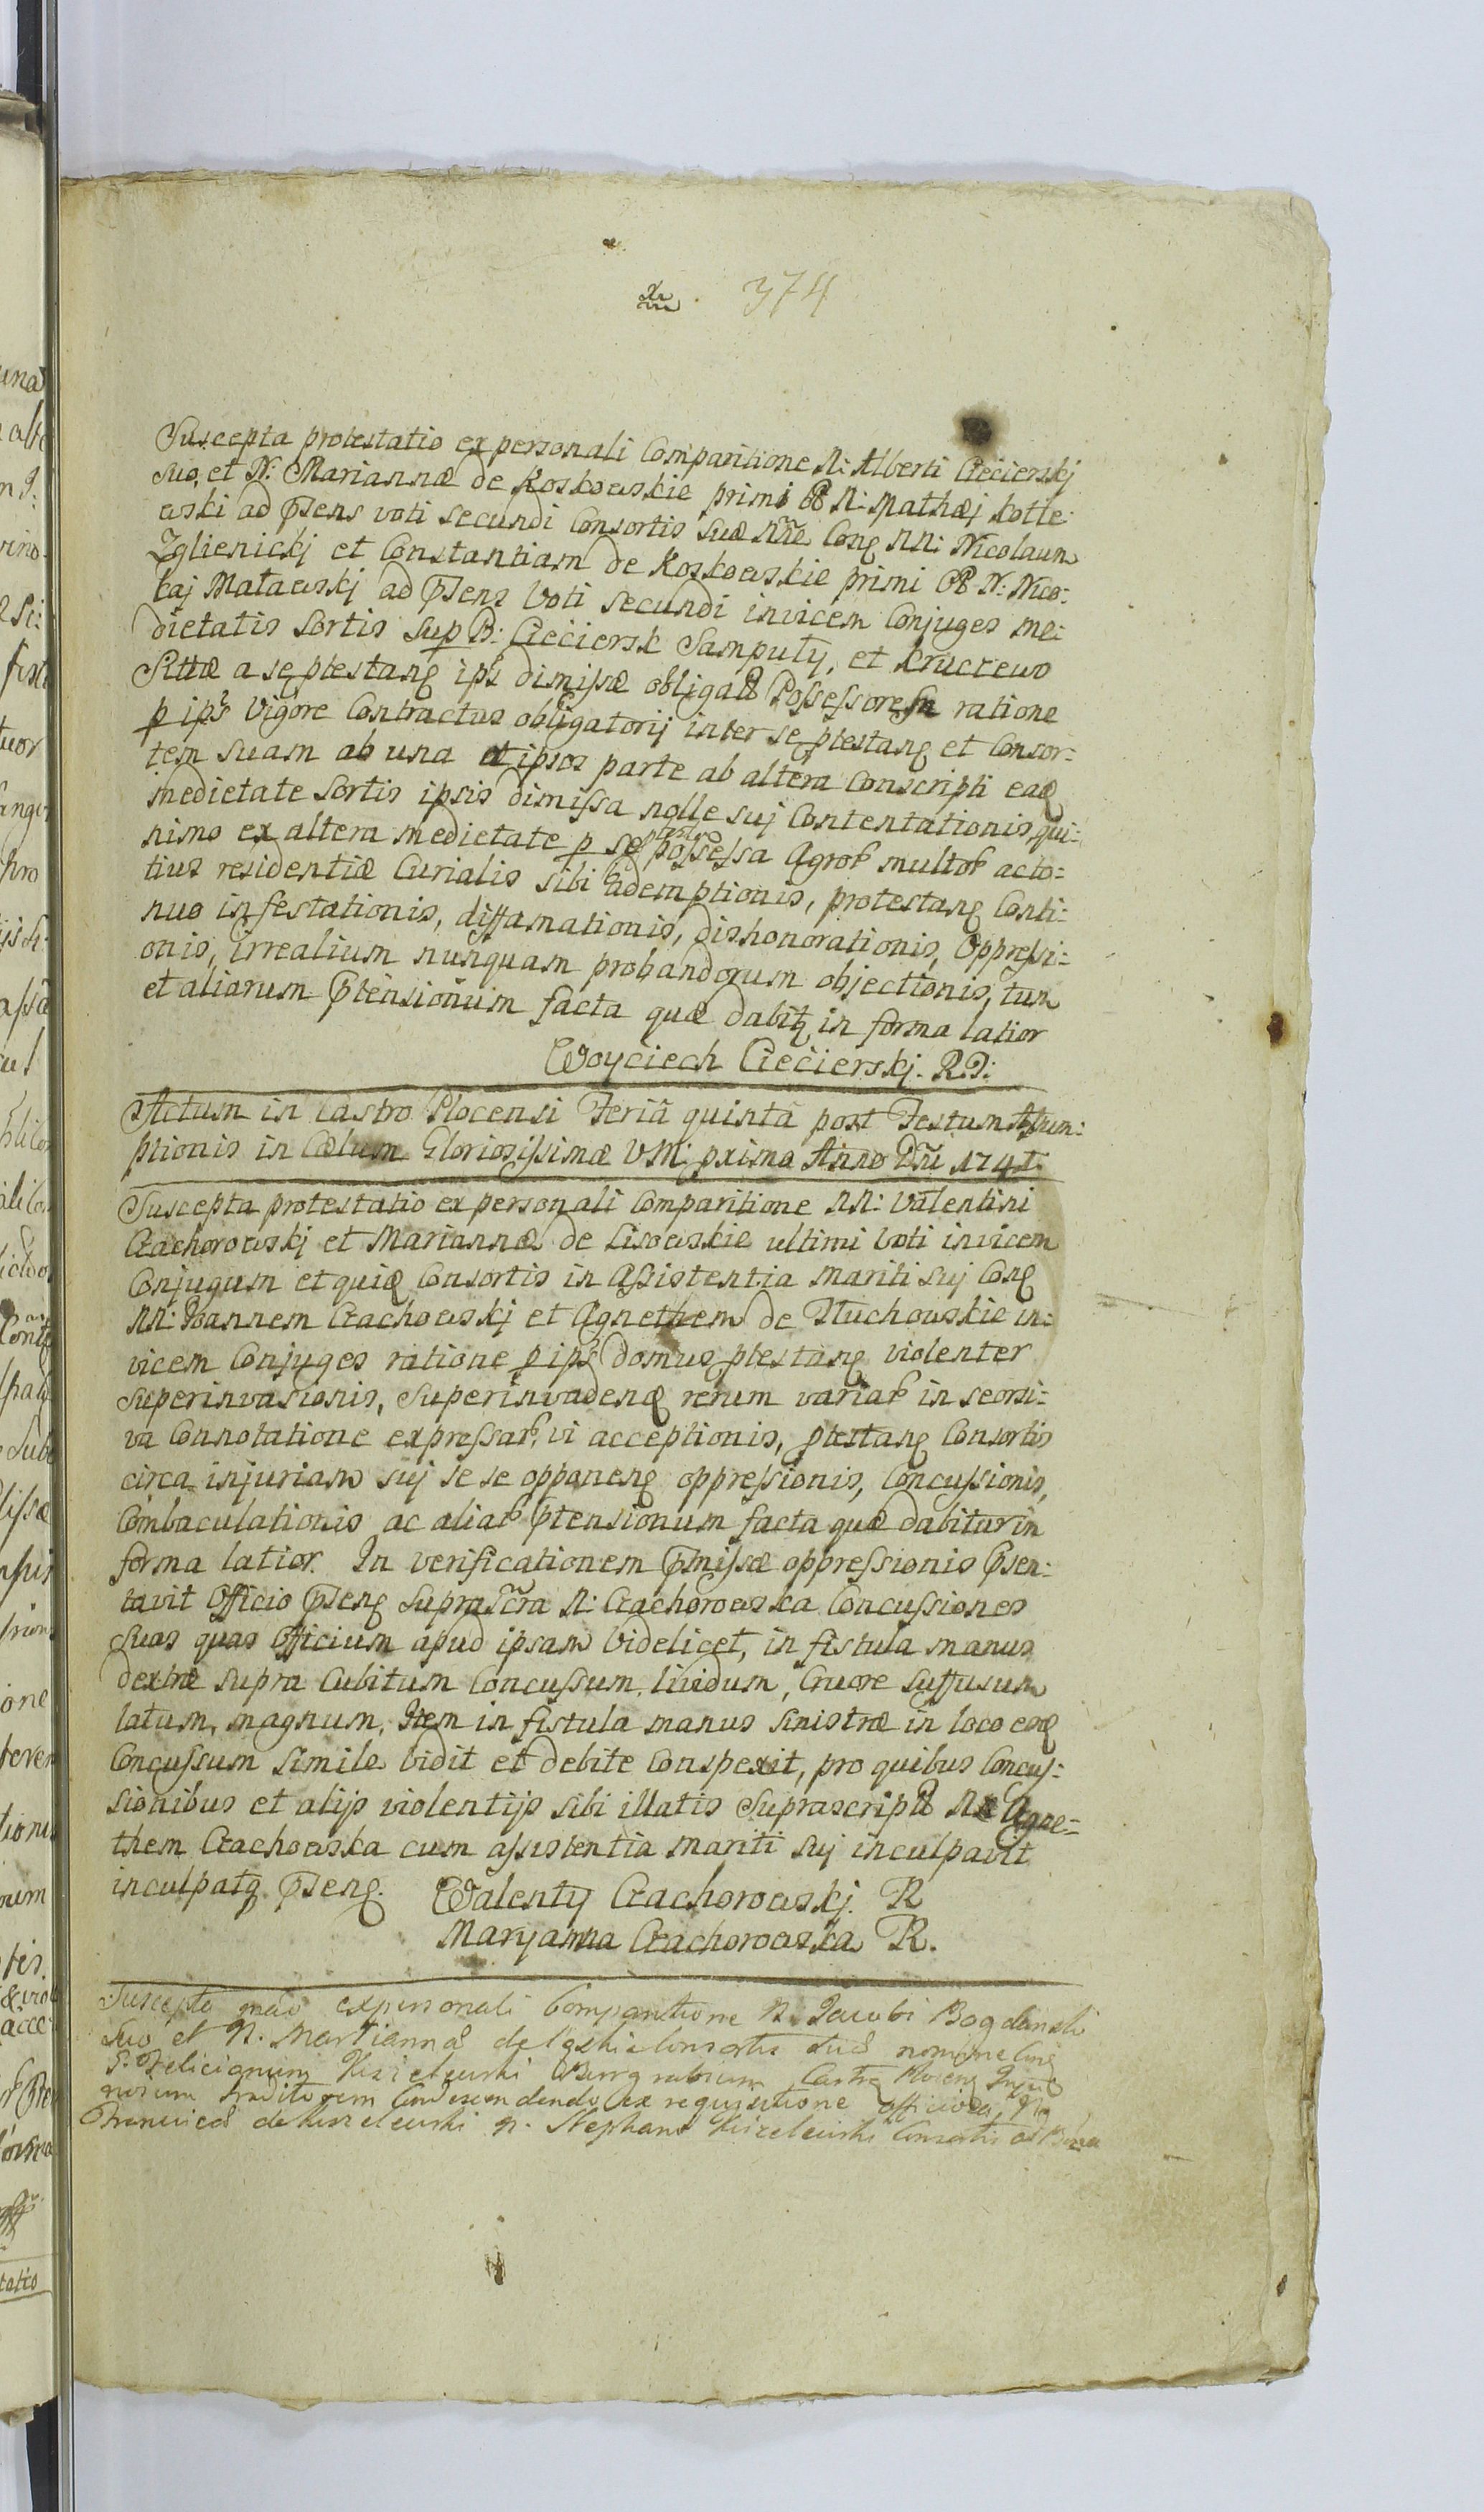 374
Suscepta protestatio ex personali Comparitione N: Alberti Ciećierskj
suo, et N: Mariannæ de Koskowskie primi N: Mathæj Kotte
wski ad pñs voti secundi Consortis suæ nñe Con NN: Nicolaum
Zglienickj et Constantiam de Koskowskie primi N: Nico:
laj Matawskj ad pñs Voti secundi invicem Conjuges me:
dietatis Sortis sup B: Ciećiersk Samputy, et Kruczewo
Sittæ a se ptestan ips dimissæ obligat Possessorem ratione
p ips Vigore Contractus obligatorij inter se ptestan et Consor:
tem suam ab una et ipsos parte ab altera Conscripti ead
medietate Sortis ipsis dimissa nolle suj Contentationis qui:
nimo ex altera medietate p se ptestan possessa Agror multor acto:
tius residentiæ Curialis sibi ademptionis, protestan Conti:
nuo infestationis, diffamationis, dishonorationis, Oppressi:
onis, irrealium nunquam probandorum objectionis, tum
et aliarum ptensionum facta quæ dabit in forma latior
Woyciech Ciećierskj. R.P:
Actum in Castro Plocensi Feriâ quintâ post Festum Assum:
ptionis in Cælum Gloriosissimæ VM: proxima Anno Dñi 1741.
Suscepta protestatio ex personali Comparitione NN: Valentini
Czachorowskj et Mariannæ de Lisowskie ultimi Voti invicem
Conjugum et quid Consortis in Assistentia mariti suj Con
NN: Joannem Czachowskj et Agnethem de Tluchowskie in:
vicem Conjuges ratione p ips domus ptestan violenter
superinvasionis, superinvaden rerum variar in seorsi:
va Connotatione expressar, vi acceptionis, ptestan Consortis
circa injuriam suj se se opponen oppressionis, Concussionis,
Combaculationis ac aliar ptensionum facta quæ dabitur in
forma latior. In verificationem pmissæ oppressionis psen:
tavit Officio psen suprascra N: Czachorowska Concussiones
suas quas Officium apud ipsam Videlicet, in fistula manus
dextræ supra Cubitum Concussum, lividum, Cruore suffusum
latum, magnum, Item in fistula manus sinistræ in loco eod
Concussum simile vidit et debite Conspexit, pro quibus Concus:
sionibus et alijs violentijs sibi illatis suprascript Agne:
them Czachowska cum assistentia mariti suj inculpavit
inculpatq psen.
Walenty Czachorowskj. R
Maryanna Czachorowska R.
Suscepta ex personali Comparitione N. Jacobi Bogdanski
suo et N. Mariannæ de Consortis suæ nomine Con
P. Felicianum Kisielewski Burgrabium Castr Plocen
traditorem Condescendendo ex requisitione officiosa
Francisca de N. Stephani Consortis